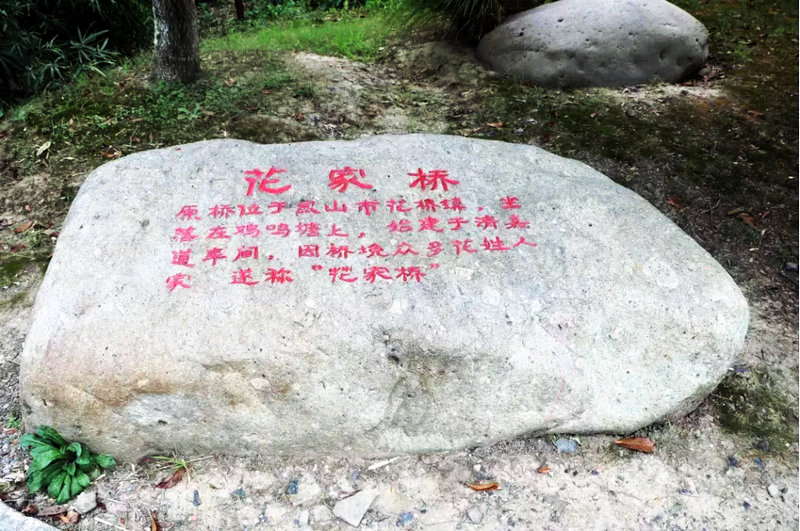 花家桥
原桥位于昆山市花桥镇，坐
落在鸡鸣塘上，始建于清嘉
道年间，因桥境众多花姓人
家 遂称“花家桥”